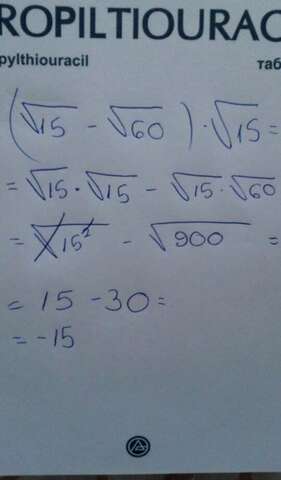 ROPILTIOURAC
pylthiouracil таб
(√15 - √60) · √15 =
= √15 · √15 - √15 · √60
= √15² - √900 =
= 15 - 30 =
= -15